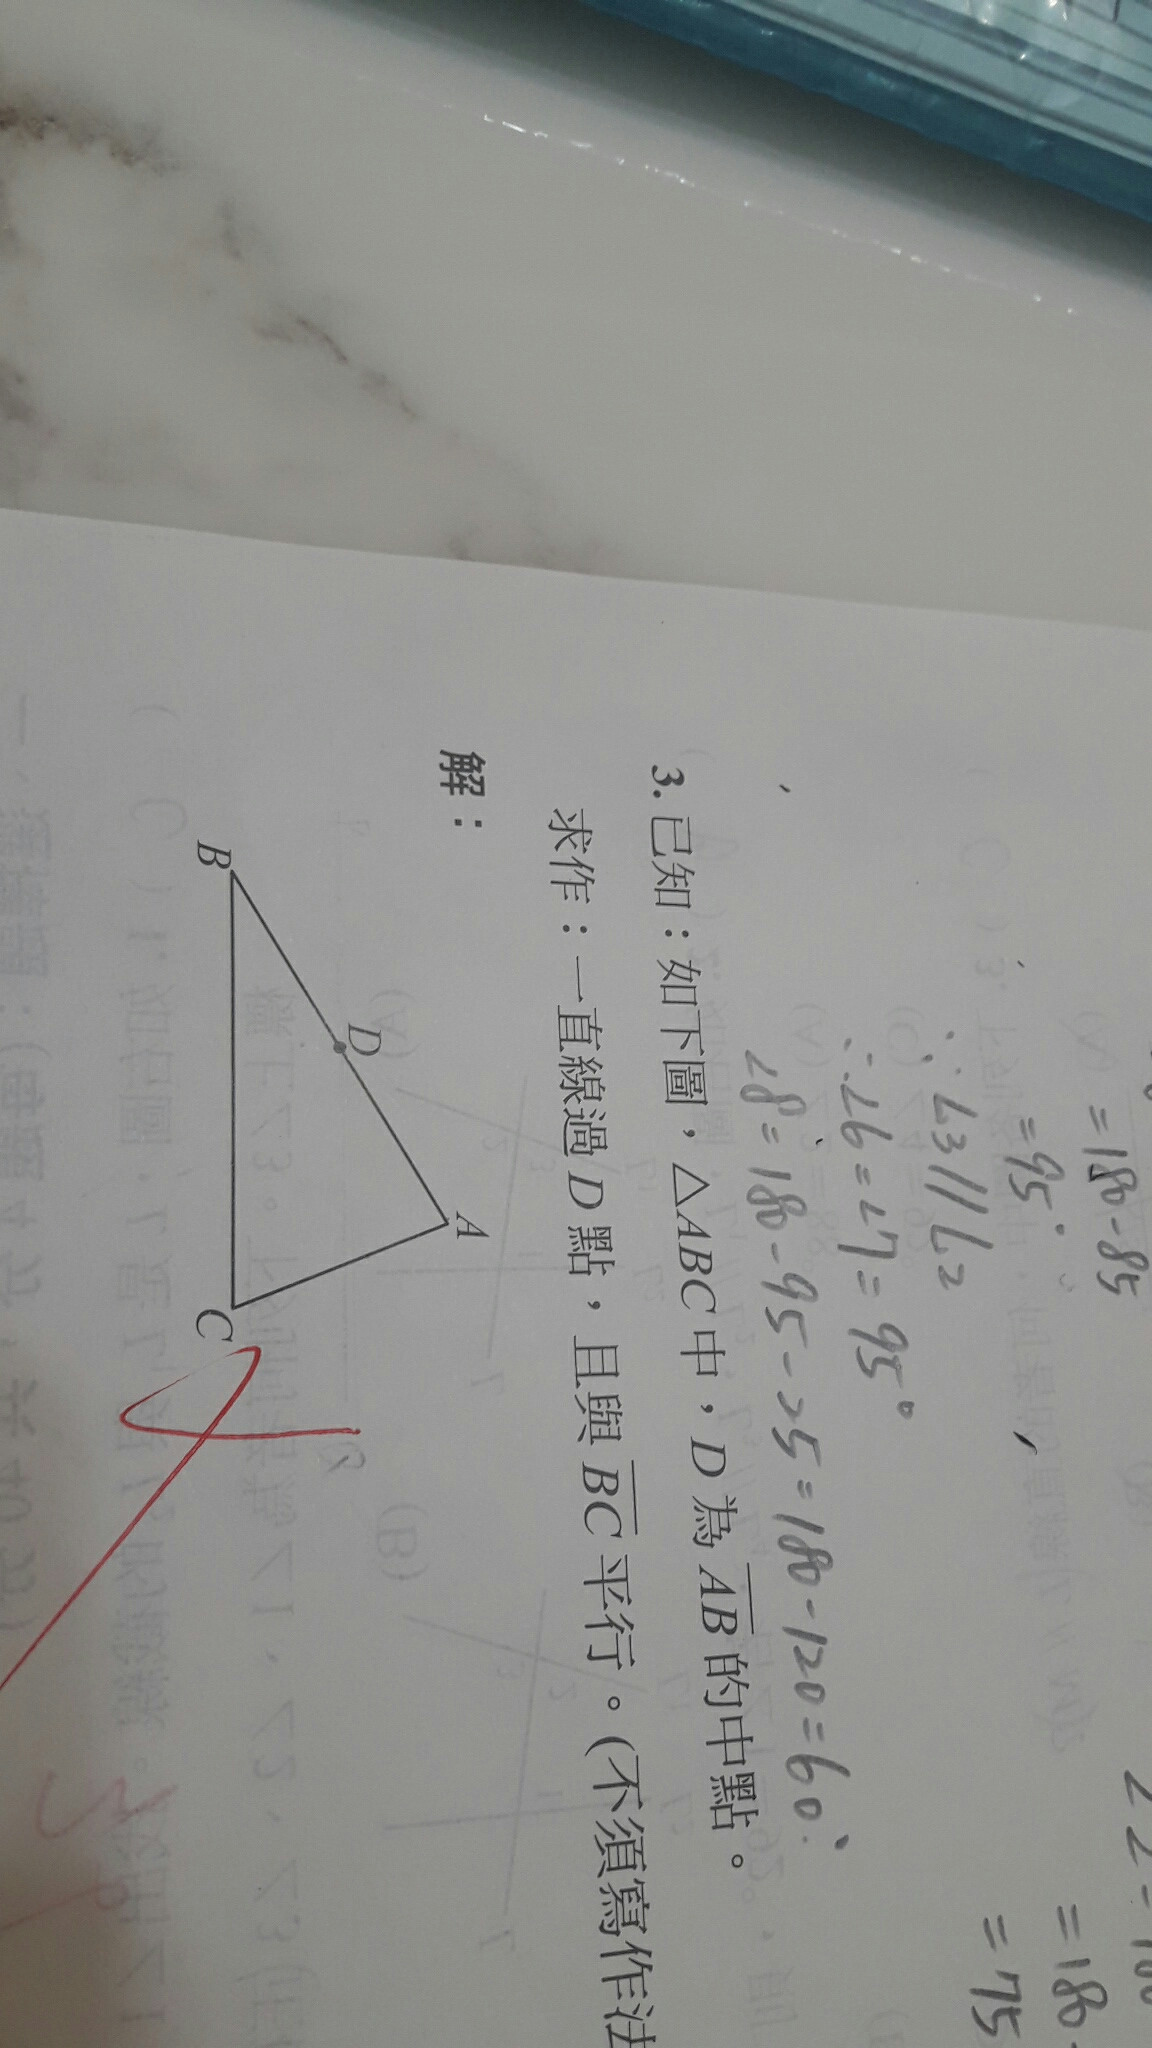 =180-85
=95°
∵L3//L2
∴∠6=∠7=95°
∠8=180-95-25=180-120=60°
=180-
=75
3. 已知：如下圖，△ABC中，D為AB的中點。
求作：一直線過D點，且與BC平行。(不須寫作法
解：
A
D
B
C